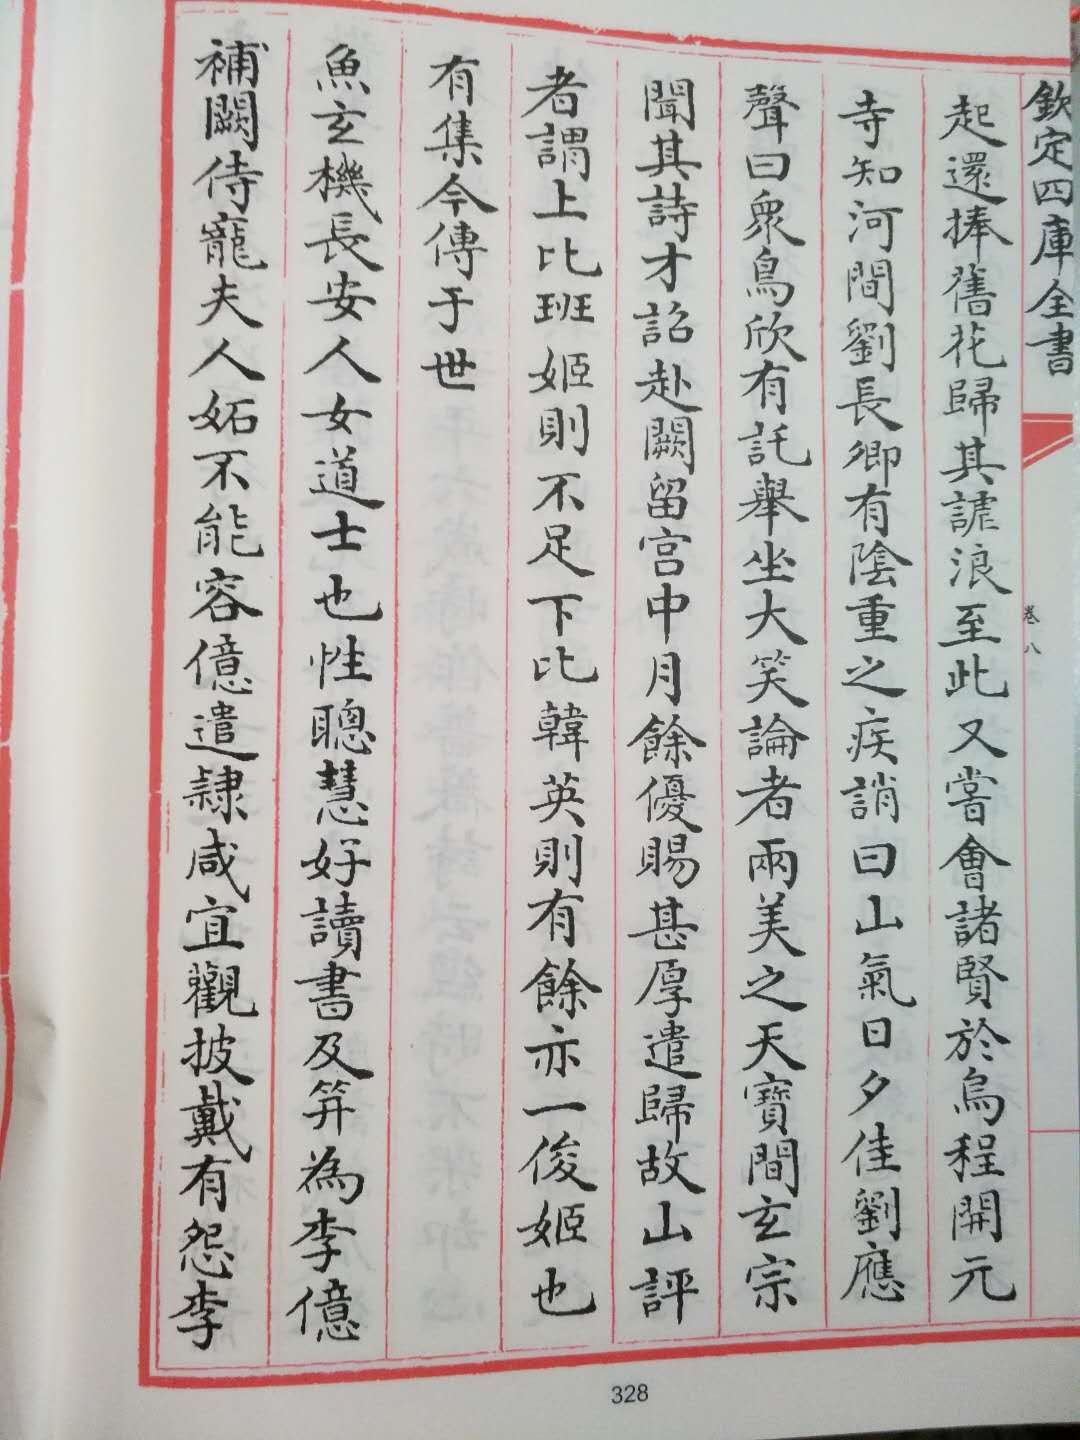 欽定四庫全書
卷八
起還捧舊花歸其謔浪至此又嘗會諸賢於烏程開元
寺知河間劉長卿有陰重之疾誚曰山氣日夕佳劉應
聲曰衆鳥欣有託舉坐大笑論者兩美之天寶間玄宗
聞其詩才詔赴闕留宫中月餘優賜甚厚遣歸故山評
者謂上比班姬則不足下比韓英則有餘亦一俊姬也
有集今傳于世
魚玄機長安人女道士也性聰慧好讀書及笄為李億
補闕侍寵夫人妬不能容億遣隷咸宜觀披戴有怨李
328